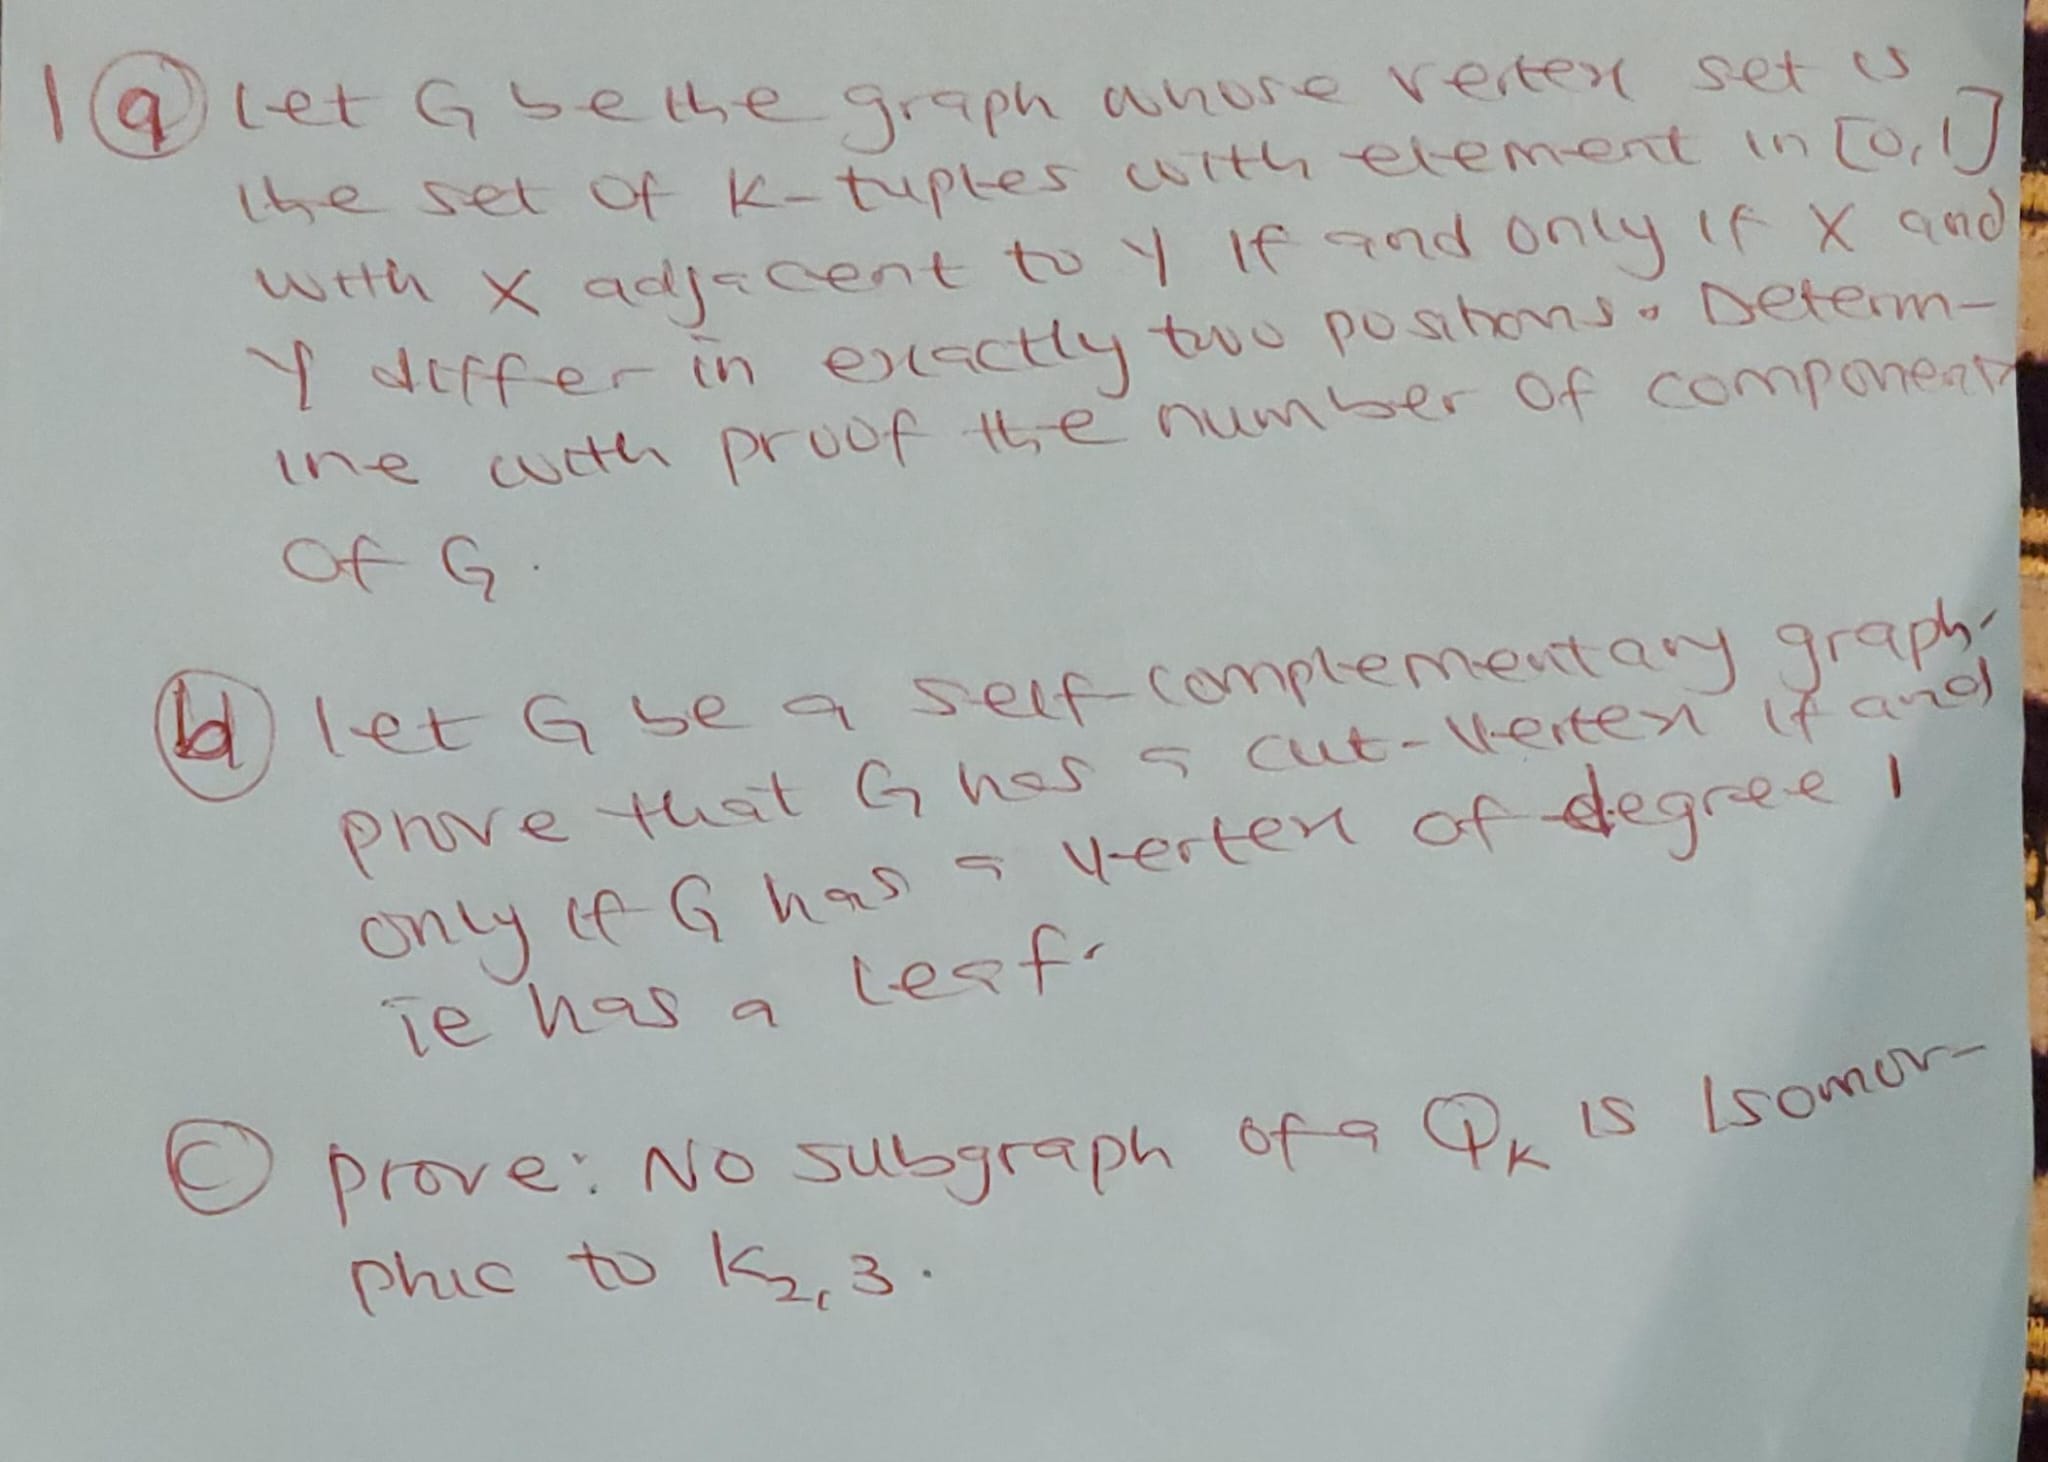 1 (a) Let G be the graph whose vertex set is
the set of K-tuples with element in [0,1]
with X adjacent to Y if and only if X and
Y differ in exactly two positions. Determ-
ine with proof the number of components
of G.
(b) let G be a self-complementary graph.
prove that G has a cut-vertex if and
only if G has a vertex of degree 1
ie has a leaf.
(c) prove: No subgraph of a Qk is Isomor-
phic to K2,3.